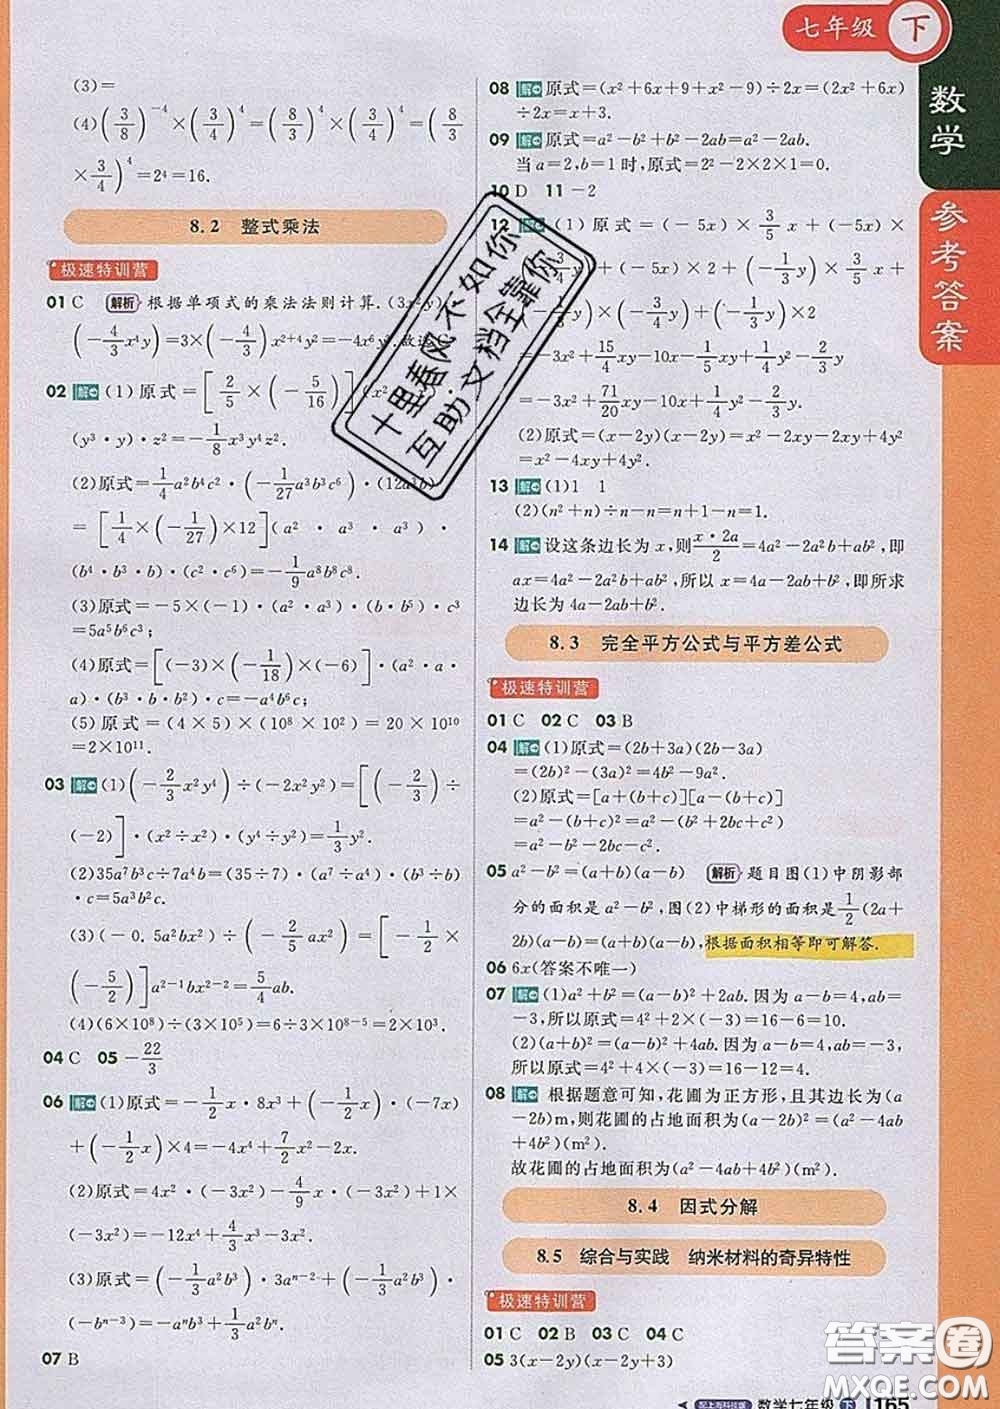 七年级 下
数学
参考答案
(3)=
(4)(3/8)^{-4}×(3/4)^4=(8/3)^4×(3/4)^4=(8/3
×3/4)^4=2^4=16.
8.2 整式乘法
极速特训营
01 C 解析 根据单项式的乘法法则计算.(3x²y)
(-4/3 x⁴y)=3×(-4/3)x^{2+4}y^{1+1}=-4x⁶y².
02 解 (1)原式=[2/5×(-5/16)]
(y³·y)·z²=-1/8 x³y⁴z².
(2)原式=1/4 a²b⁴c²·(-1/27 a³b³c⁶)·(12a³b)
=[1/4×(-1/27)×12](a²·a³·a³)·
(b⁴·b³·b)·(c²·c⁶)=-1/9 a⁸b⁸c⁸.
(3)原式=-5×(-1)·(a²·a³)·(b·b⁵)·c³
=5a⁵b⁶c³;
(4)原式=[(-3)×(-1/18)×(-6)]·(a²·a·
a)·(b³·b³)·(c·c²)=-a⁴b⁶c³;
(5)原式=(4×5)×(10⁸×10²)=20×10¹⁰
=2×10¹¹.
03 解 (1)(-2/3 x²y⁴)÷(-2x²y²)=[(-2/3)÷
(-2)]·(x²÷x²)·(y⁴÷y²)=1/3 y².
(2)35a⁷b³c÷7a⁴b=(35÷7)·(a⁷÷a⁴)·(b³÷b)
·c=5a³b²c.
(3)(-0.5a²bx²)÷(-2/5 ax²)=[(-1/2)×
(-5/2)]a^{2-1}bx^{2-2}=5/4 ab.
(4)(6×10⁸)÷(3×10⁵)=(6÷3)×10^{8-5}=2×10³.
04 C 05 -22/3
06 解 (1)原式=-1/2 x·8x³+(-1/2 x)·(-7x)
+(-1/2 x)×4=-4x⁴+7/2 x²-2x.
(2)原式=4x²·(-3x²)-4/9 x·(-3x²)+1×
(-3x²)=-12x⁴+4/3 x³-3x².
(3)原式=(-1/3 a²b³)·3a^{n-2}+(-1/3 a²b³)·
(-b^{n-3})=-aⁿb³+1/3 a²bⁿ.
07 B
08 解 原式=(x²+6x+9+x²-9)÷2x=(2x²+6x)
÷2x=x+3.
09 解 原式=a²-b²+b²-2ab=a²-2ab.
当a=2,b=1时,原式=2²-2×2×1=0.
10 D 11 -2
12 解 (1)原式=(-5x)×3/5 x+(-5x)×
+(-5x)×(-2)+(-1/3 y)×3/5 x+
=-3x²+15/4 xy+10x-1/5 xy-
=-3x²+71/20 xy+10x-1/4 y²-2/3 y.
(2)原式=(x-2y)(x-2y)=x²-2xy-2xy+4y²
=x²-4xy+4y².
13 解 (1)1 1
(2)(n²+n)÷n-n=n+1-n=1.
14 解 设这条边长为x,则x·2a/2=4a²-2a²b+ab²,即
ax=4a²-2a²b+ab²,所以x=4a-2ab+b²,即所求
边长为4a-2ab+b².
8.3 完全平方公式与平方差公式
极速特训营
01 C 02 C 03 B
04 解 (1)原式=(2b+3a)(2b-3a)
=(2b)²-(3a)²=4b²-9a².
(2)原式=[a+(b+c)][a-(b+c)]
=a²-(b+c)²=a²-(b²+2bc+c²)
=a²-b²-2bc-c².
05 a²-b²=(a+b)(a-b) 解析 题目图(1)中阴影部
分的面积是a²-b²,图(2)中梯形的面积是1/2(2a+
2b)(a-b)=(a+b)(a-b),根据面积相等即可解答.
06 6x(答案不唯一)
07 解 (1)a²+b²=(a-b)²+2ab.因为a-b=4,ab=
-3,所以原式=4²+2×(-3)=16-6=10.
(2)(a+b)²=(a-b)²+4ab.因为a-b=4,ab=-3,
所以原式=4²+4×(-3)=16-12=4.
08 解 根据题意可知,花圃为正方形,且其边长为(a
-2b)m,则花圃的占地面积为(a-2b)²=(a²-4ab
+4b²)(m²).
故花圃的占地面积为(a²-4ab+4b²)(m²).
8.4 因式分解
8.5 综合与实践 纳米材料的奇异特性
极速特训营
01 C 02 B 03 C 04 C
05 3(x-2y)(x-2y+3)
配上海科技版 数学七年级 下 165
十里春风不如你
互助文档全靠你
答案卷
MXQE.COM